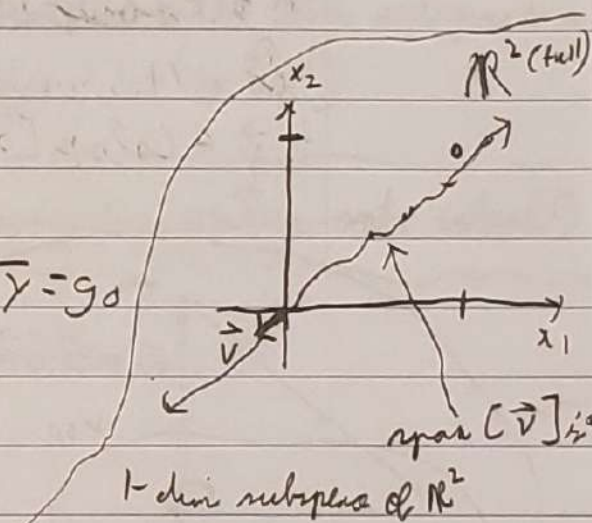 x₂
ℝ² (full)
= g₀
v⃗
x₁
span [v⃗] is
1-dim subspace of ℝ²